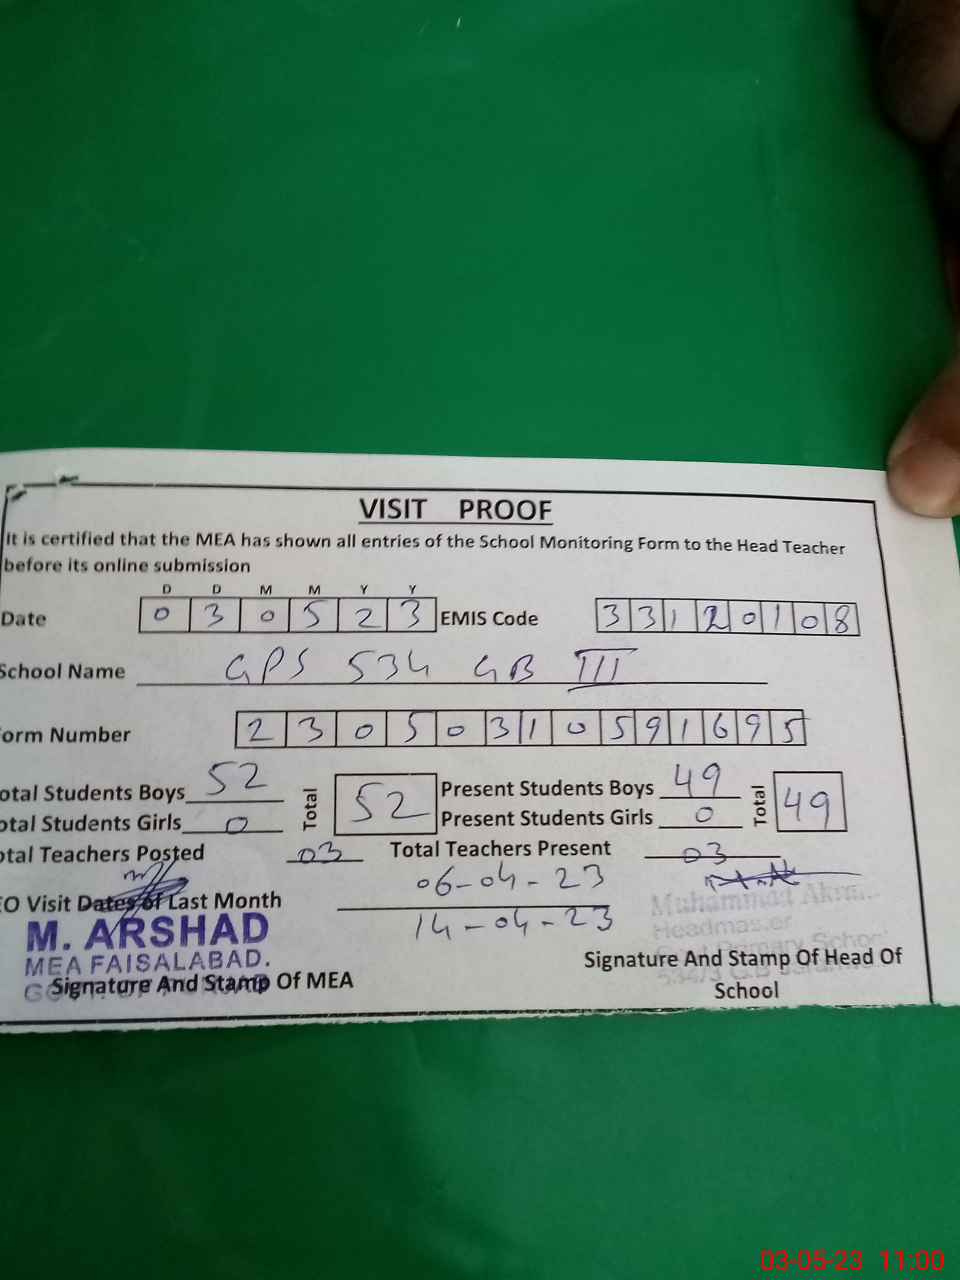 VISIT PROOF
It is certified that the MEA has shown all entries of the School Monitoring Form to the Head Teacher
before its online submission
D D M M Y Y
Date 0 3 0 5 2 3 EMIS Code 3 3 1 2 0 1 0 8
School Name GPS 534 GB III
orm Number 2 3 0 5 0 3 1 0 5 9 1 6 9 5
otal Students Boys 52 Total 52 Present Students Boys 49 Total 49
otal Students Girls 0 Present Students Girls 0
otal Teachers Posted 03 Total Teachers Present 03
EO Visit Dates of Last Month 06-04-23
14-04-23
M. ARSHAD
MEA FAISALABAD.
Signature And Stamp Of MEA
Muhammad
Headmaster
Primary School
Signature And Stamp Of Head Of
School
03-05-23 11:00